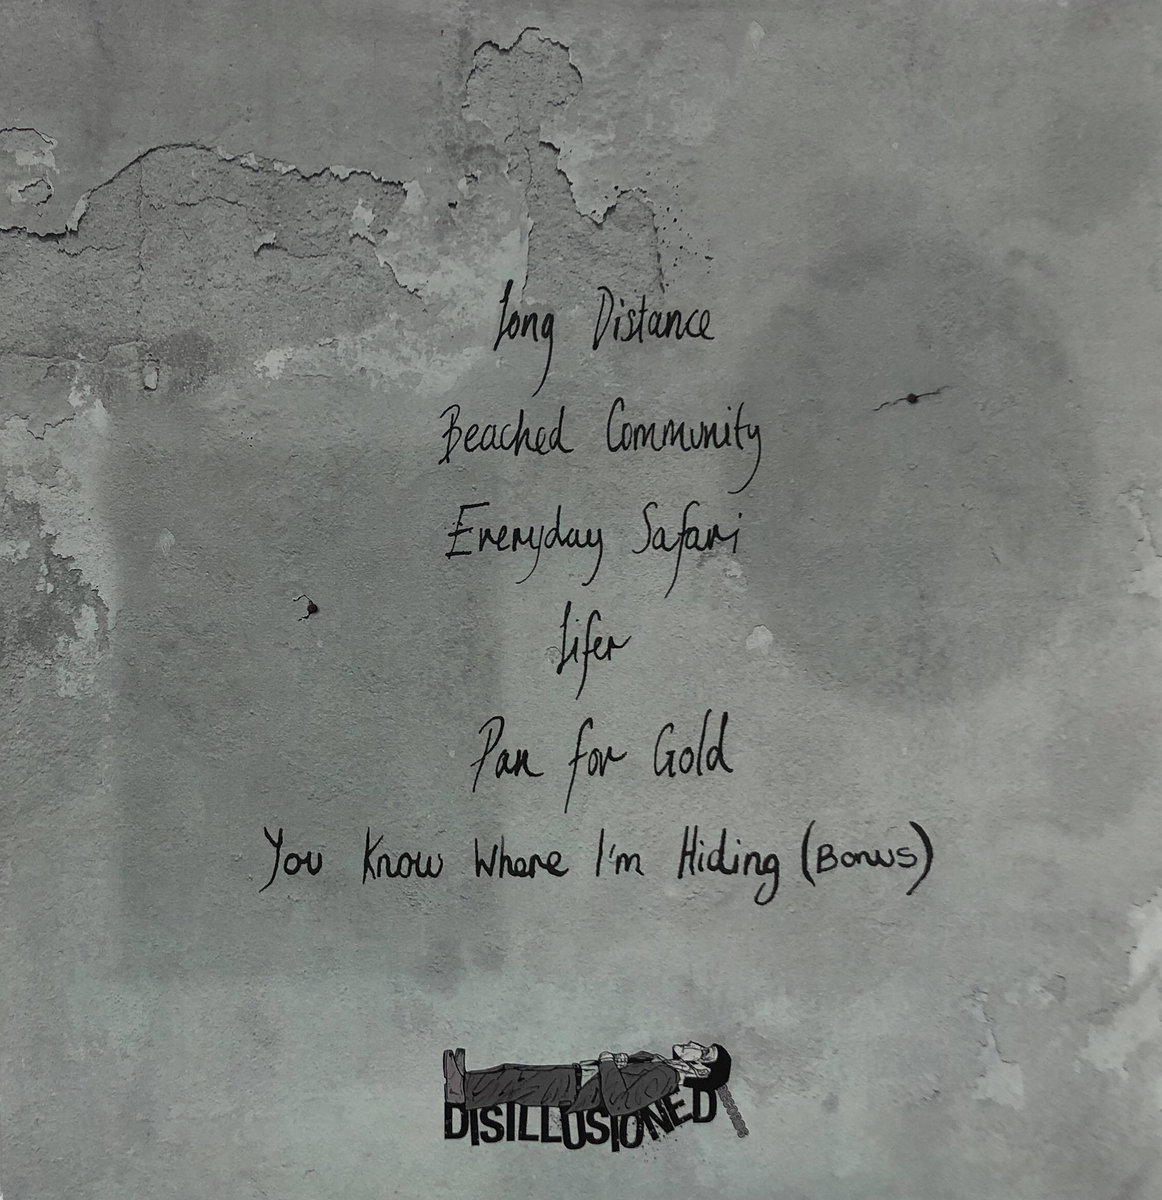 Long Distance
Beached Community
Everyday Safari
Lifer
Pan for Gold
You Know Where I'm Hiding (Bonus)
DISILLUSIONED
RECORDS